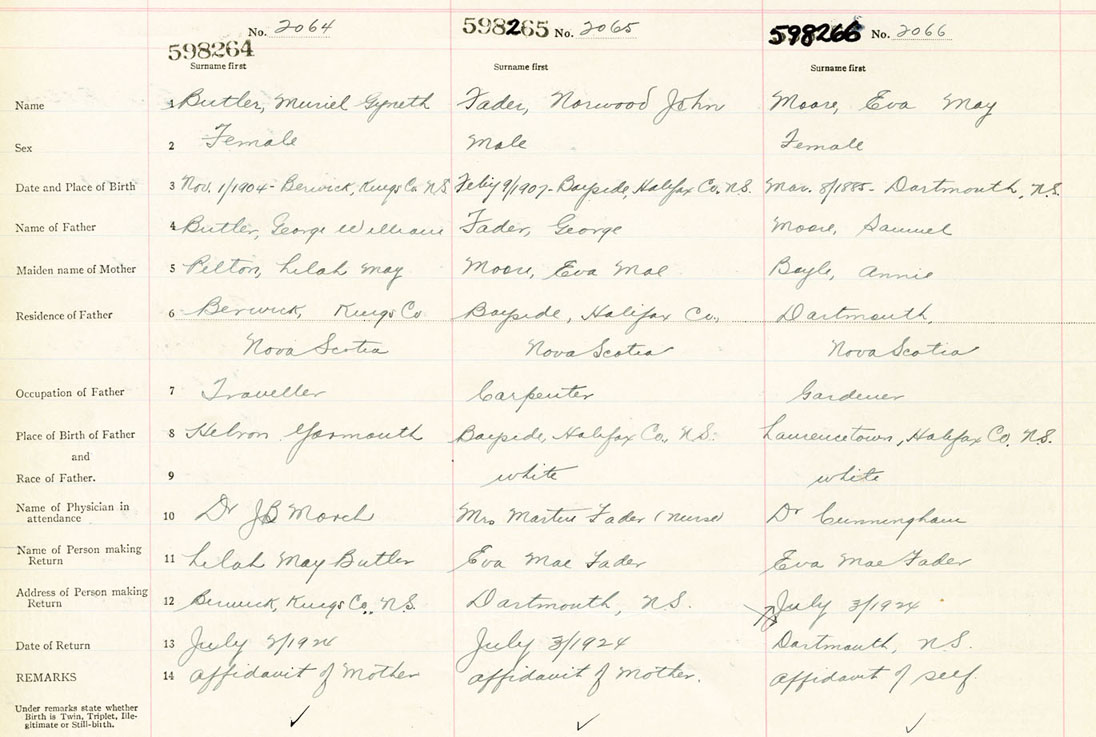 No. 2064 598265 No. 2065 598266 No. 2066
598264
Surname first Surname first Surname first
Name 1 Butler, Muriel Gyneth Fader, Norwood John Moore, Eva May
Sex 2 Female Male Female
Date and Place of Birth 3 Nov. 1/1904 - Berwick, Kings Co. N.S. Feby 9/1907 - Bayside, Halifax Co. N.S. Mar. 8/1885 - Dartmouth, N.S.
Name of Father 4 Butler, George William Fader, George Moore, Samuel
Maiden name of Mother 5 Pelton, Lelah May Moore, Eva Mae Boyle, Annie
Residence of Father 6 Berwick, Kings Co Bayside, Halifax Co., Dartmouth,
Nova Scotia Nova Scotia Nova Scotia
Occupation of Father 7 Traveller Carpenter Gardener
Place of Birth of Father 8 Hebron Yarmouth Bayside, Halifax Co., N.S. Laurencetown, Halifax Co. N.S.
and
Race of Father. 9 white white
Name of Physician in
attendance 10 Dr J B Mrs Fader (nurse) Dr Cunningham
Name of Person making
Return 11 Lelah May Butler Eva Mae Fader Eva Mae Fader
Address of Person making
Return 12 Berwick, Kings Co., N.S. Dartmouth, N.S. July 3/1924
Date of Return 13 July 2/1924 July 3/1924 Dartmouth, N.S.
REMARKS 14 affidavit of Mother affidavit of Mother. affidavit of self.
Under remarks state whether
Birth is Twin, Triplet, Ille-
gitimate or Still-birth.